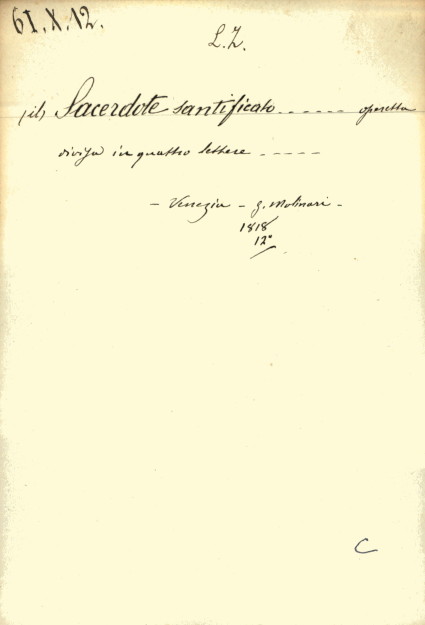 61.X.12.
L.Z.
(il) Sacerdote santificato ...... operetta
divisa in quattro lettere .....
- Venezia - G. Molinari -
1818
12°
C